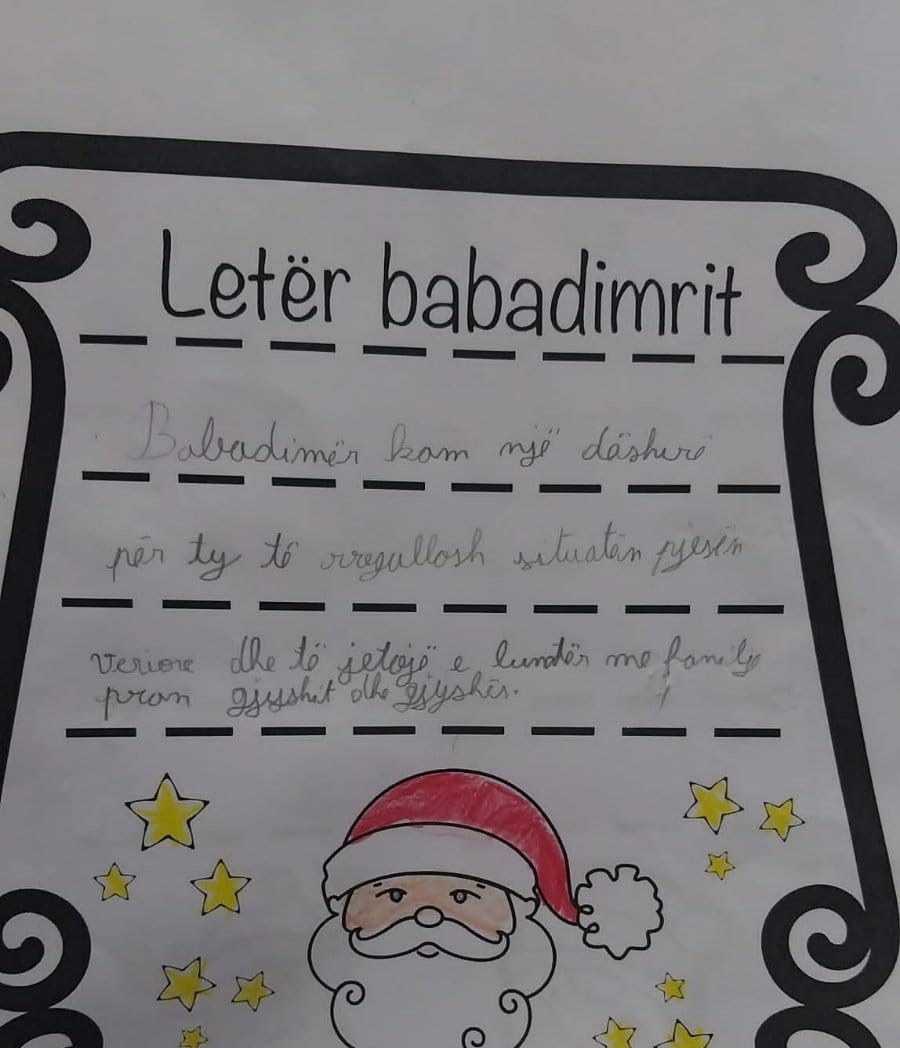 Letër babadimrit
Babadimër kam një dáshurë
për ty të rregullosh situatën pjesën
veriore dhe të jetojë e lumtër me familje
pran gjyshit dhe gjyshës.